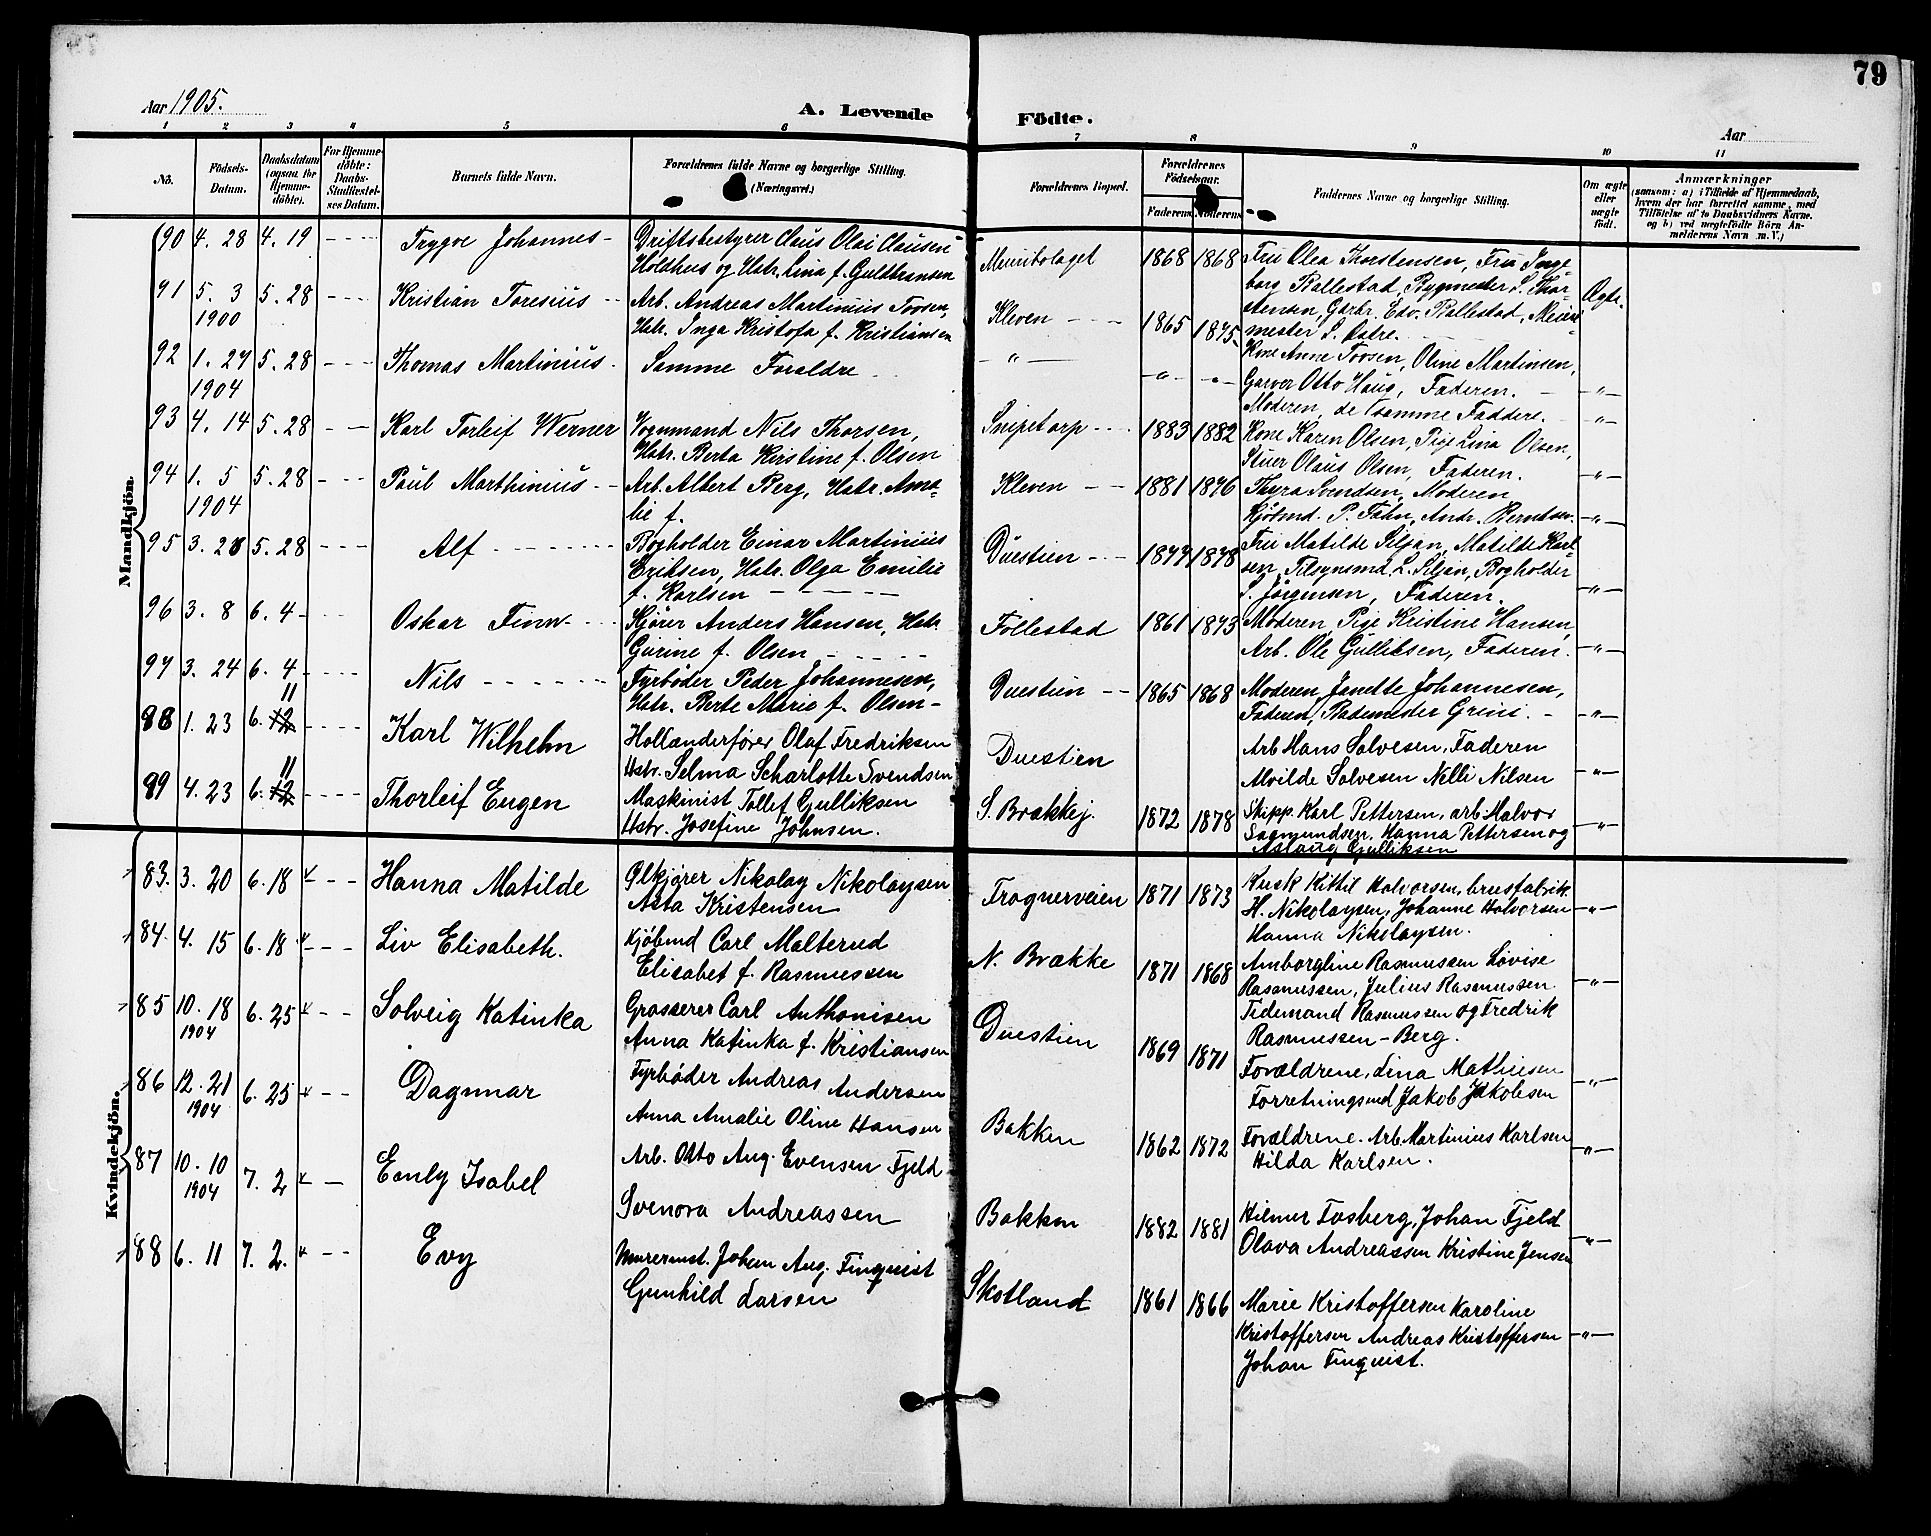 79
Aar 1905.
A. Levende Födte.
Aar
1 2 3 4 5 6 7 8 9 10 11
No.
Födsels-Datum.
Daabsdatum (ogsaa for Hjemme-döbte).
For Hjemme-döbte: Daabs-Stadfæstel-ses Datum.
Barnets fulde Navn.
Forældrenes fulde Navne og borgerlige Stilling. (Næringsvei.)
Forældrenes Bopæl.
Forældrenes Födselsaar.
Faderens Moderens
Faddernes Navne og borgerlige Stilling.
Om ægte eller uægte födt.
Anmærkninger
(saasom: a) i Tilfælde af Hjemmedaab, hvem der har forrettet samme, med Tilföielse af to Daabsvidners Navne, og b) ved uægtefödte Börn An-melderens Navn m. V.)
Mandkjön.
90 4. 28 4. 19 Trygve Johannes
Driftsbestyrer Claus Olai Clausen
Holthus og Hstr. Lina f. Gulbransen
1868 1868
Fru Olea Torstensen, Fru Inge
borg Ballestad, Bygmester S. Thor
stensen, Garbr. Edv. Ballestad, Meieri
mester S. Østre.
Ægte.
91 5. 3 1900 5. 28 Kristian Toresius
Arb. Andreas Martinius Toosen,
Hstr. Inga Kristofa f. Kristiansen
Kleven 1865 1875
Kone Anne Toosen, Oline Martinsen,
Garver Otto Haug, Faderen. -"-
92 1. 27 1904 5. 28 Thomas Martinius
Samme Foraldre
-"- -"- -"-
Moderen, de samme Faddere. -"-
93 4. 14 5. 28 Karl Torleif Werner
Vognmand Nils Thorsen,
Hstr. Berta Kirstine f. Olsen
Snipetorp 1883 1882
Kone Karen Olsen, Pige Lina Olsen,
Stuer Olaus Olsen, Faderen. -"-
94 1. 5 1904 5. 28 Paul Marthinius
Arb. Albert Berg, Hstr. Ama-
lie f.
Kleven 1881 1876
Thyra Svendsen, Moderen
Kjöbmd. P. Fahn, Andr. Berntsen. -"-
95 3. 28 5. 28 Alf
Bogholder Einar Martinius
Eriksen, Hstr. Olga Emilie
f. Karlsen
Duestien 1877 1878
Fru Matilde Siljan, Matilde Karl
sen, Tilsynsmd. L. Siljan, Bogholder
S. Jörgensen, Faderen. -"-
96 3. 8 6. 4 Oskar Finn
Kjörer Anders Hansen, Hstr.
Gurine f. Olsen
Follestad 1861 1873
Moderen, Pige Kristine Hansen,
Arb. Ole Gulliksen, Faderen. -"-
97 3. 24 6. 4 Nils
Fyrböder Peder Johannesen,
Hstr. Berte Marie f. Olsen
Duestien 1865 1868
Moderen, Janette Johannesen,
Faderen, Bademester Greini. -"-
88 1. 23 6. 11 Karl Wilhelm
Hollænderförer Olaf Fredriksen
Hstr. Selma Scharlotte Svendsen
Duestien
Arb Hans Solvesen, Faderen
Alvilde Solvesen Nelli Nilsen -"-
89 4. 23 6. 11 Thorleif Eugen
Maskinist Tollef Gulliksen
Hstr. Josefine Johnsen.
S. Brækkej. 1872 1878
Skipp. Karl Pettersen, arb Halvor
Saamundsen, Hanna Pettersen og
Aslaug Gulliksen -"-
Kvindekjön.
83. 3. 20 6. 18 Hanna Matilde
Ølkjører Nikolay Nikolaysen
Asta Kristensen
Frognerveien 1871 1873
Kusk Kittil Halvorsen, brusfabrik.
H. Nikolaysen, Johanne Halvorsen
Hanna Nikolaysen. -"-
84. 4. 15 6. 18 Liv Elisabeth.
Kjöbmd Carl Malterud
Elisabet f. Rasmussen
N. Brække 1871 1868
Amborgline Rasmussen Lovise
Rasmussen, Julius Rasmussen
Tidemand Rasmussen og Fredrik
Rasmussen-Berg. -"-
85 10. 18 1904 6. 25 Solveig Katinka
Grosserer Carl Anthonisen
Anna Katinka f. Kristiansen
Duestien 1869 1871
Forældrene, Lina Mathisen
Forretningsmd Jakob Jakobsen -"-
86 12. 21 1904 6. 25 Dagmar
Fyrbøder Andreas Andersen
Anna Amalie Oline Hansen
Bakken 1862 1872
Forældrene. Arb. Martinius Karlsen
Hilda Karlsen. -"-
87 10. 10 1904 7. 2 Emly Isabel
Arb. Otto Aug. Evensen Fjeld
Svenora Andreassen
Bakken 1882 1881
Hilmer Fosberg, Johan Fjeld
Olava Andreassen Kristine Jensen -"-
88 6. 11 7. 2. Evy
Murermst. Johan Aug. Finquist
Gunhild Larsen
Skotland 1861 1866
Marie Kristoffersen Karoline
Kristoffersen Andreas Kristoffersen
Johan Finquist. -"-